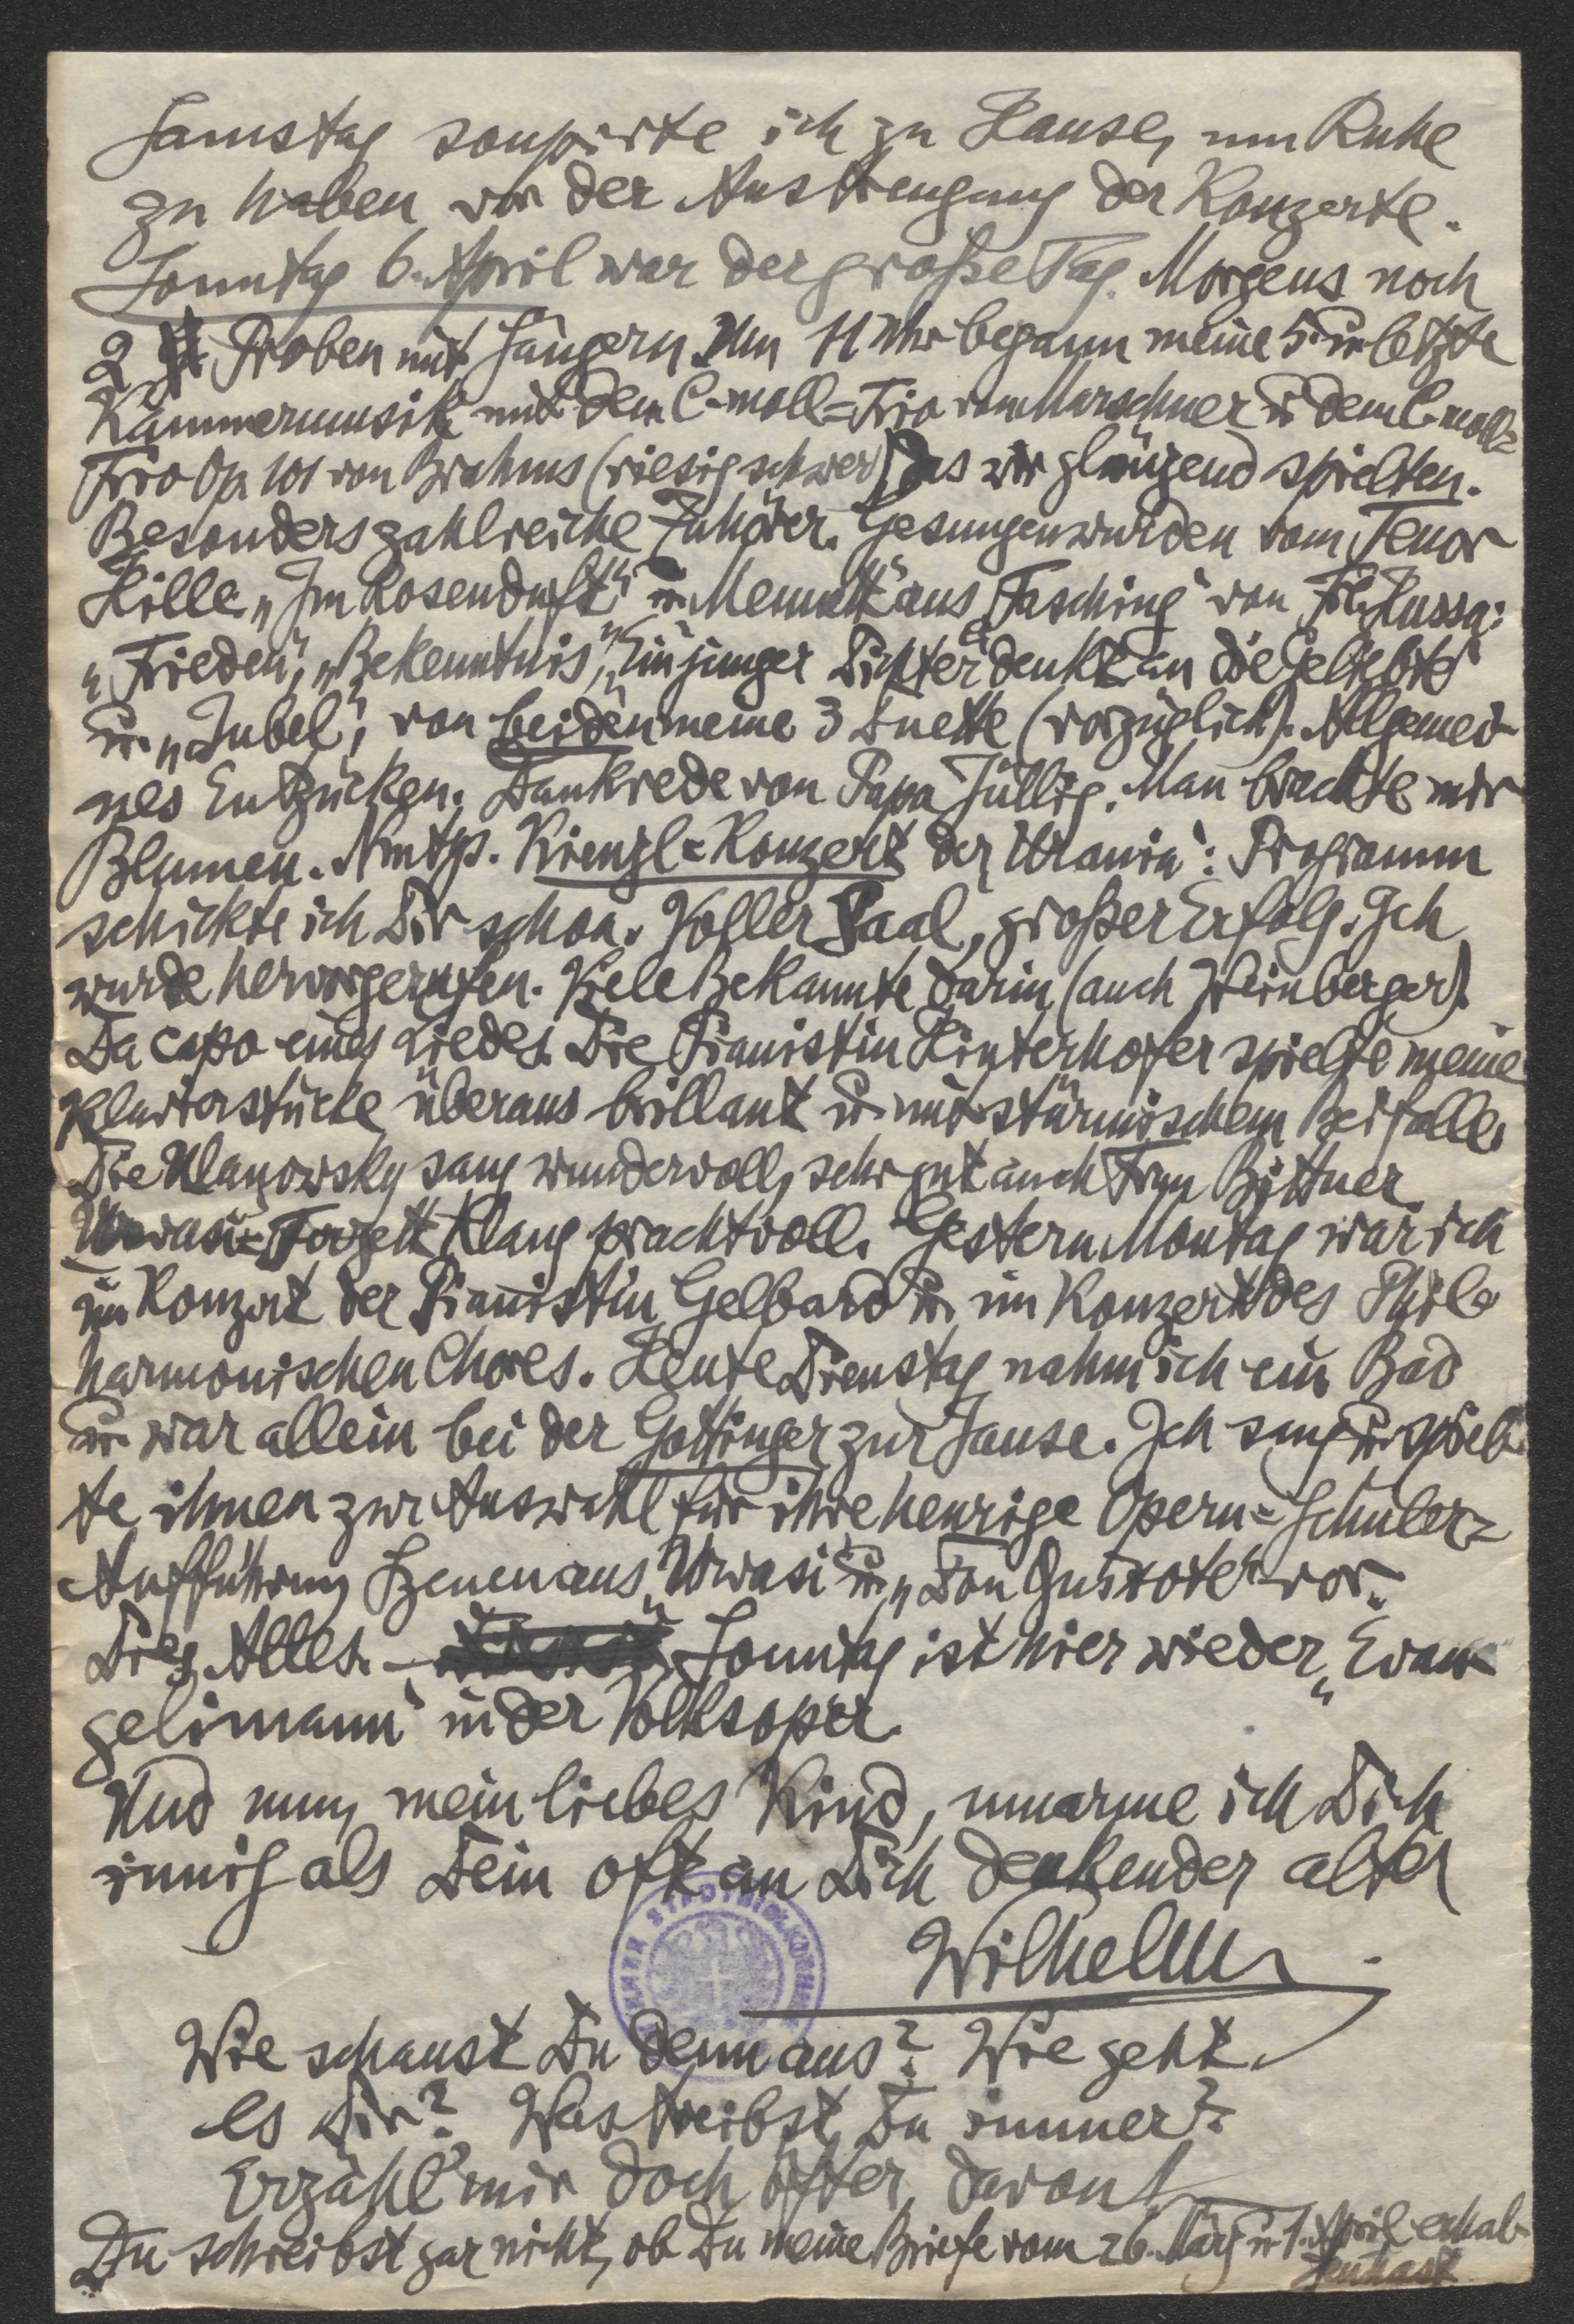 Samstag soupirte ich zu Hause, um Ruhe
zu haben vor der Anstrengung der Konzerte.
Sonntag 6. April war der große Tag. Morgens noch
2 Proben mit Sängern. Um 11 Uhr begann meine 5. u. letzte
Kammermusik mit dem C-moll=Trio von Marschner u. dem C-moll=
Trio Op. 101 von Brahms (riesig schwer), das wir glänzend spielten.
Besonders zahlreiche Zuhörer. Gesungen wurden vom Tenor
Hille „Im Rosenduft" u. Menuett aus „Fasching" von Frl. Hussa:
„Frieden", „Bekenntnis", „Ein junger Dichter denkt an die Geliebte"
u. „Jubel", von beiden meine 3 Duette (vorzüglich). Allgemei-
nes Entzücken. Dankrede von Papa Jüllig. Man brachte mir
Blumen. Nmtgs. Kienzl=Konzert der „Urania": Programm
schickte ich Dir schon. Voller Saal, großer Erfolg. Ich
wurde hervorgerufen. Viele Bekannte darin (auch Weinberger).
Da capo eines Liedes. Die Pianistin Hinterhofer spielte meine
Klavierstücke überaus brillant u. mit stürmischem Beifalle.
Die Ulanowsky sang wundervoll, sehr gut auch Frau Bittner.
Urvasi=Terzett klang prachtvoll. Gestern Montag war ich
im Konzert der Pianistin Gelbard u. im Konzert des Phil-
harmonischen Chores. Heute Dienstag nahm ich ein Bad
u. war allein bei der Gottinger zur Jause. Ich sang u. spiel-
te ihnen zur Auswahl für ihre heurige Opern=Schüler=
Aufführung Szenen aus „Urvasi" u. „Don Quixote" vor.
Dies Alles. – Sonntag ist hier wieder „Evan-
gelimann" in der Volksoper.
Und nun, mein liebes Kind, umarme ich Dich
innig als Dein oft an Dich denkender alter
Wilhelm.
Wie schaust Du denn aus? Wie geht
es Dir? Was treibst Du immer?
Erzähl' mir doch öfter davon!
Du schreibst gar nicht, ob Du meine Briefe vom 26. März u. 1. April erhal-
ten hast